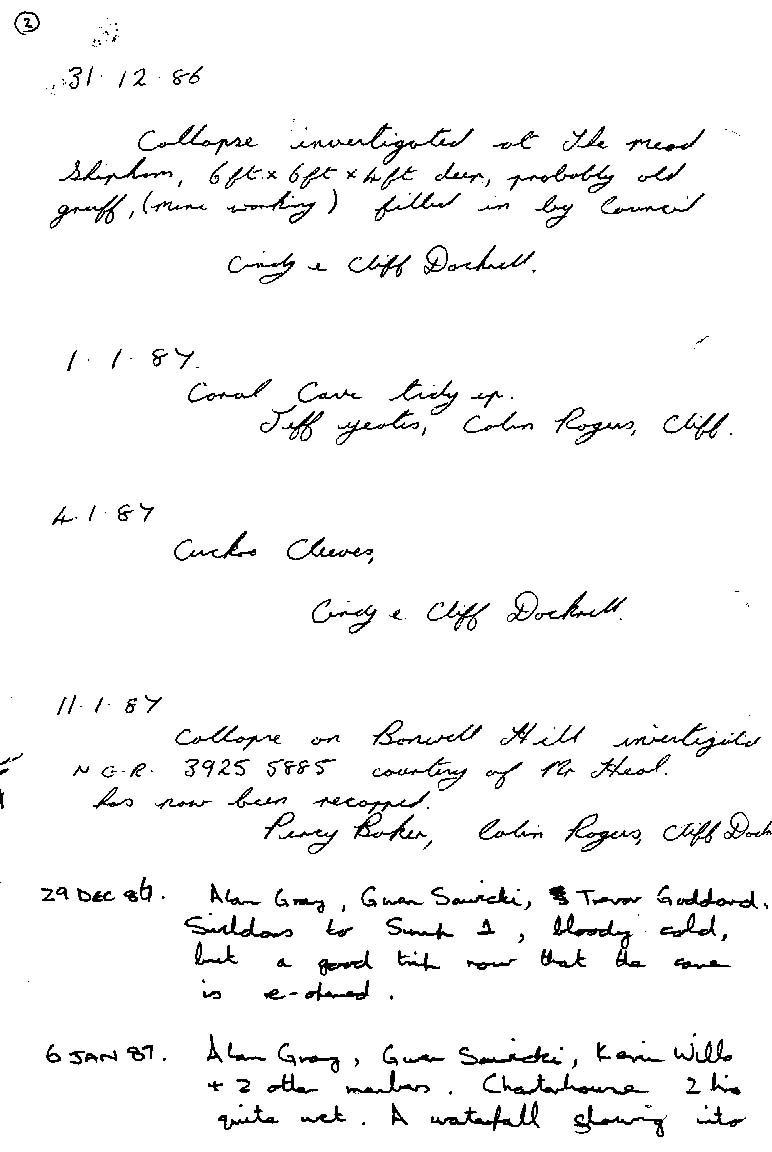 2
31.12.86
Collapse investigated at The mead
Shipham, 6ft x 6ft x 4ft deep, probably old
gruff, (mine working) filled in by Council
Cindy & Cliff Dockrell.
1.1.87.
Coral Cave tidy up.
Jeff yeates, Colin Rogers, Cliff.
4.1.87
Cuckoo Cleeves,
Cindy & Cliff Dockrell.
11.1.87
Collapse on Hill investigate
N.G.R. 3925 5885 courtesy of Mr Heal.
has now been recapped.
Percy Baker, Colin Rogers, Cliff Dock
29 DEC 86. Alan Gray, Gwen Sawicki, Trevor Goddard.
Swildons to Sump 1, bloody cold,
but a good trip now that the cave
is re-opened.
6 JAN 87. Alan Gray, Gwen Sawicki, Kevin Wills
+ 2 other members. Charterhouse 2 hrs
quite wet. A waterfall flowing into